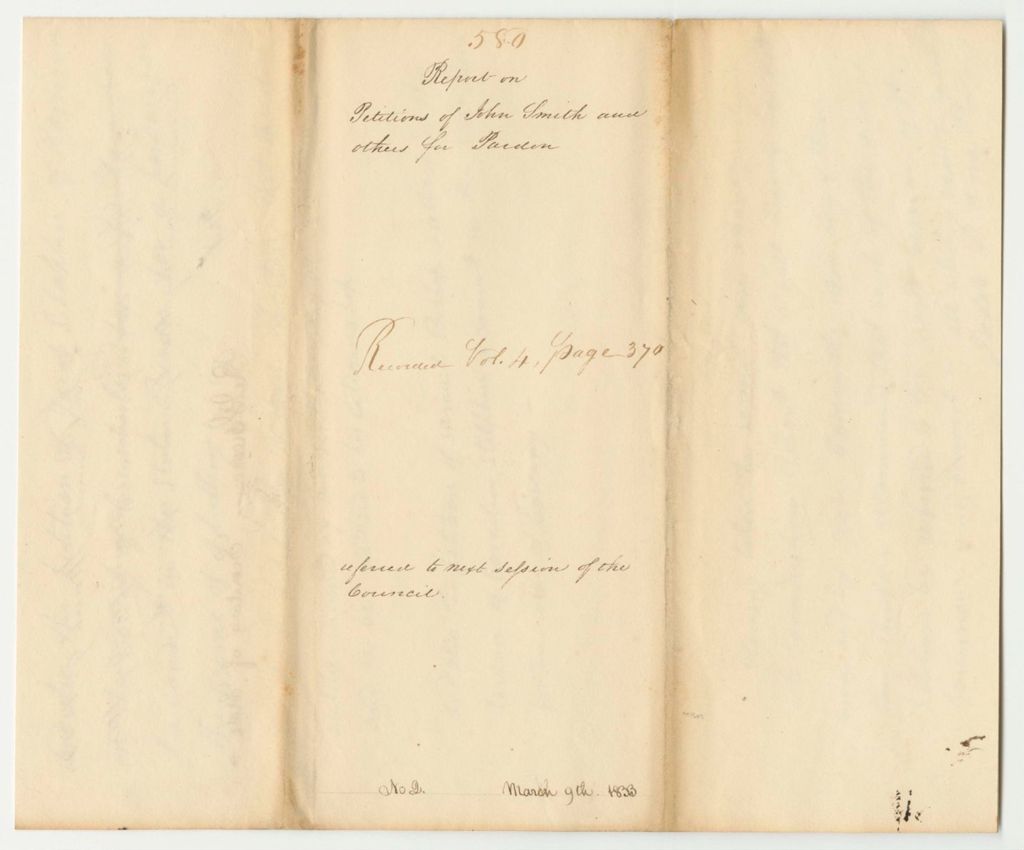 580
Report on
Petitions of John Smith and
others for Pardon
Recorded Vol. 4, page 370
referred to next session of the
Council.
No 2. March 9th. 1833